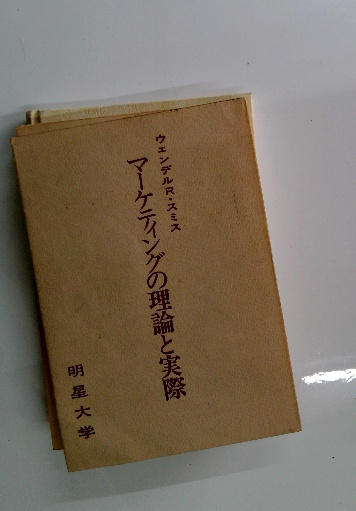 ウェンデルR・スミス
マーケティングの理論と実際
明星大学